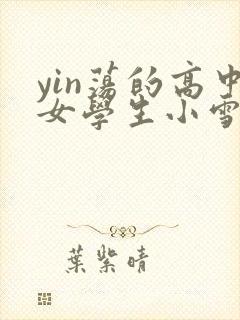 yin蕩的高中
女學生小雪
葉紫晴